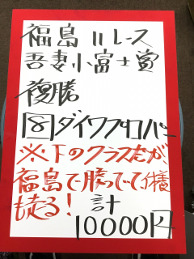 福島11レース
吾妻小富士賞
複勝
⑧ダイワプロパー
※下のクラスだが
福島で勝ててる様
も走る！
計
10000円